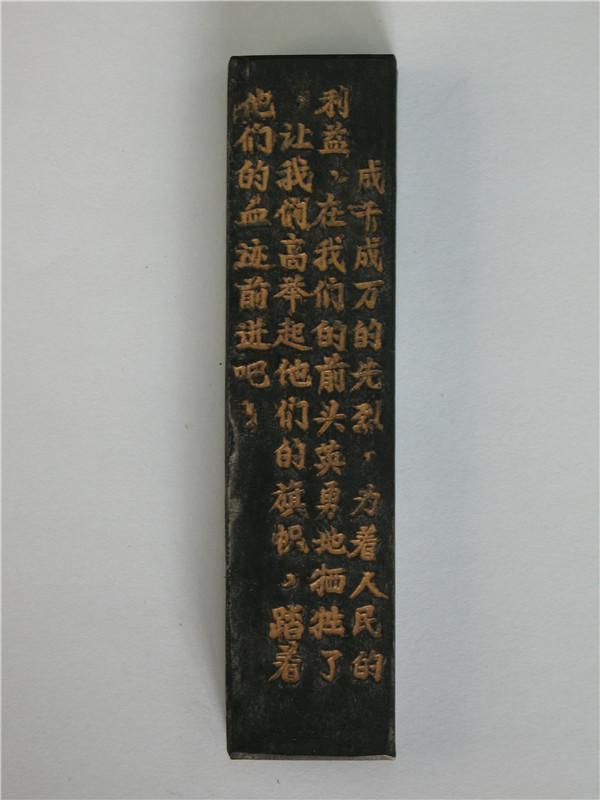 成千成万的先烈，为着人民的
利益，在我们的前头英勇地牺牲了
，让我们高举起他们的旗帜，踏着
他们的血迹前进吧！